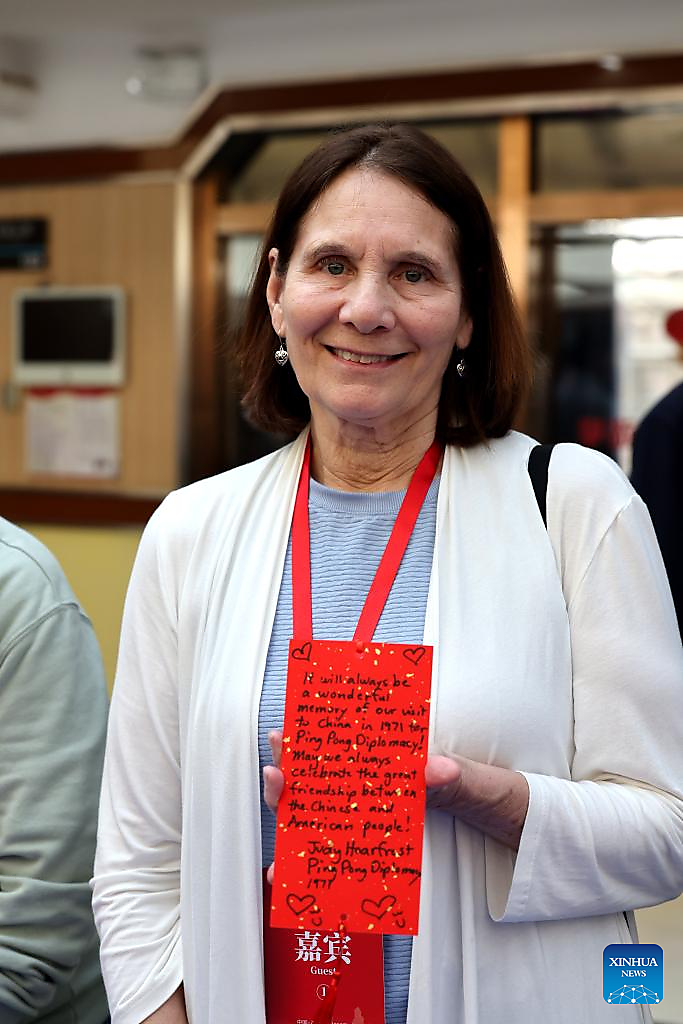 It will always be
a wonderful
memory of our visit
to China in 1971 for
Ping Pong Diplomacy!
May we always
celebrate the great
friendship between
the Chinese and
American people!
Judy Hoarfrost
Ping Pong Diplomacy
1971
嘉宾
Guest
①
XINHUA
NEWS